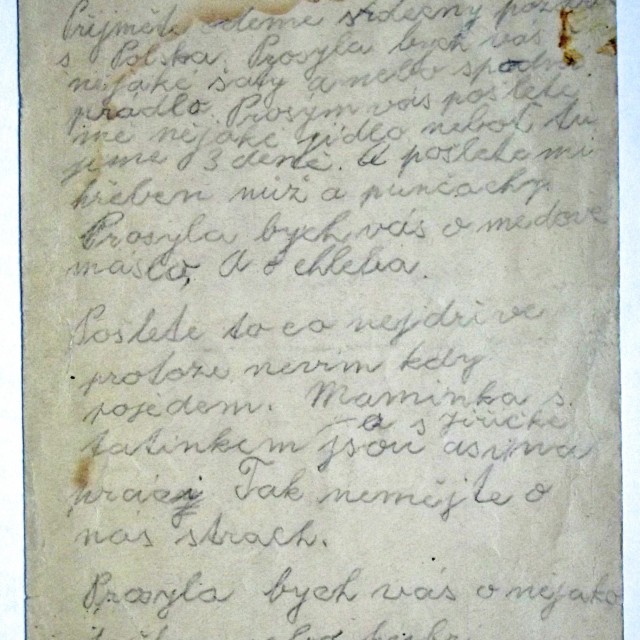 Přijměte odemne srdečný pozdrav
s Polska. Prosyla bych vás
nejaké šaty anebo spodní
prádlo. Prosym vás pošlete
mě nejaké jidlo neboť tu
jsme 3 dení. A pošlete mi
hřeben nůž a punčochy
Prosyla bych vás o medové
máslo, A chleba.
Poslete to co nejdrive
protože nevim kdy
pojedem. Maminka s
a s jiřičkem
tatínkem jsou asi na
hrázy Tak nemějte o
nás strach.
Prosyla bych vás o nejako